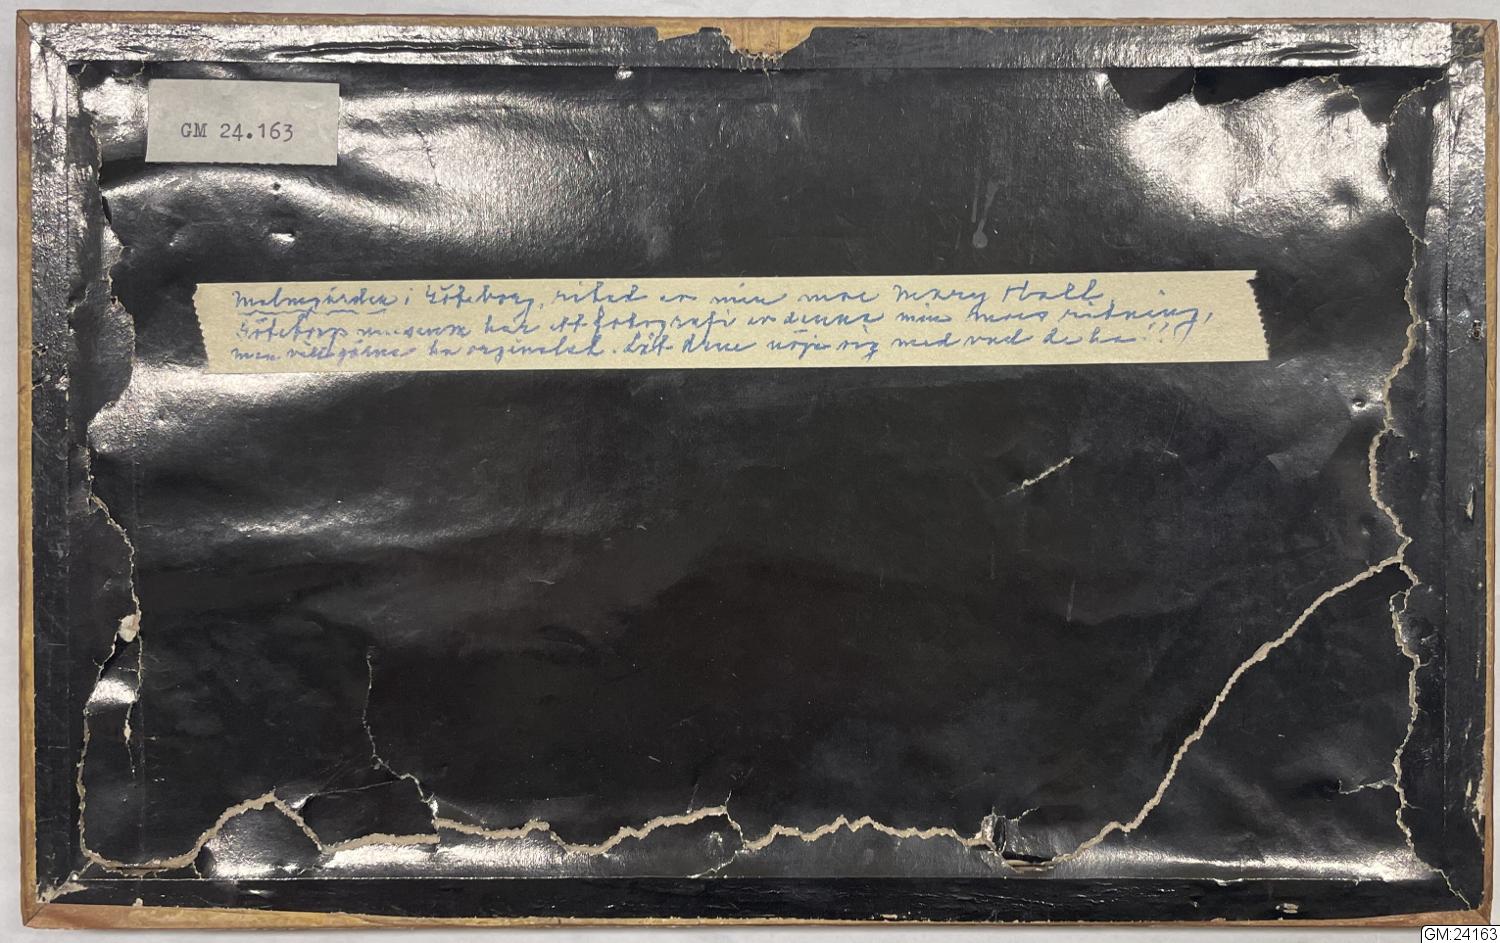 GM 24.163
Malmgården i Göteborg, ritad av min mor Mary Hall,
Göteborgs museum har ett fotografi av denna min mors ritning,
men vill gärna ha orginalet. Låt dem nöja sig med vad de ha!!
GM:24163